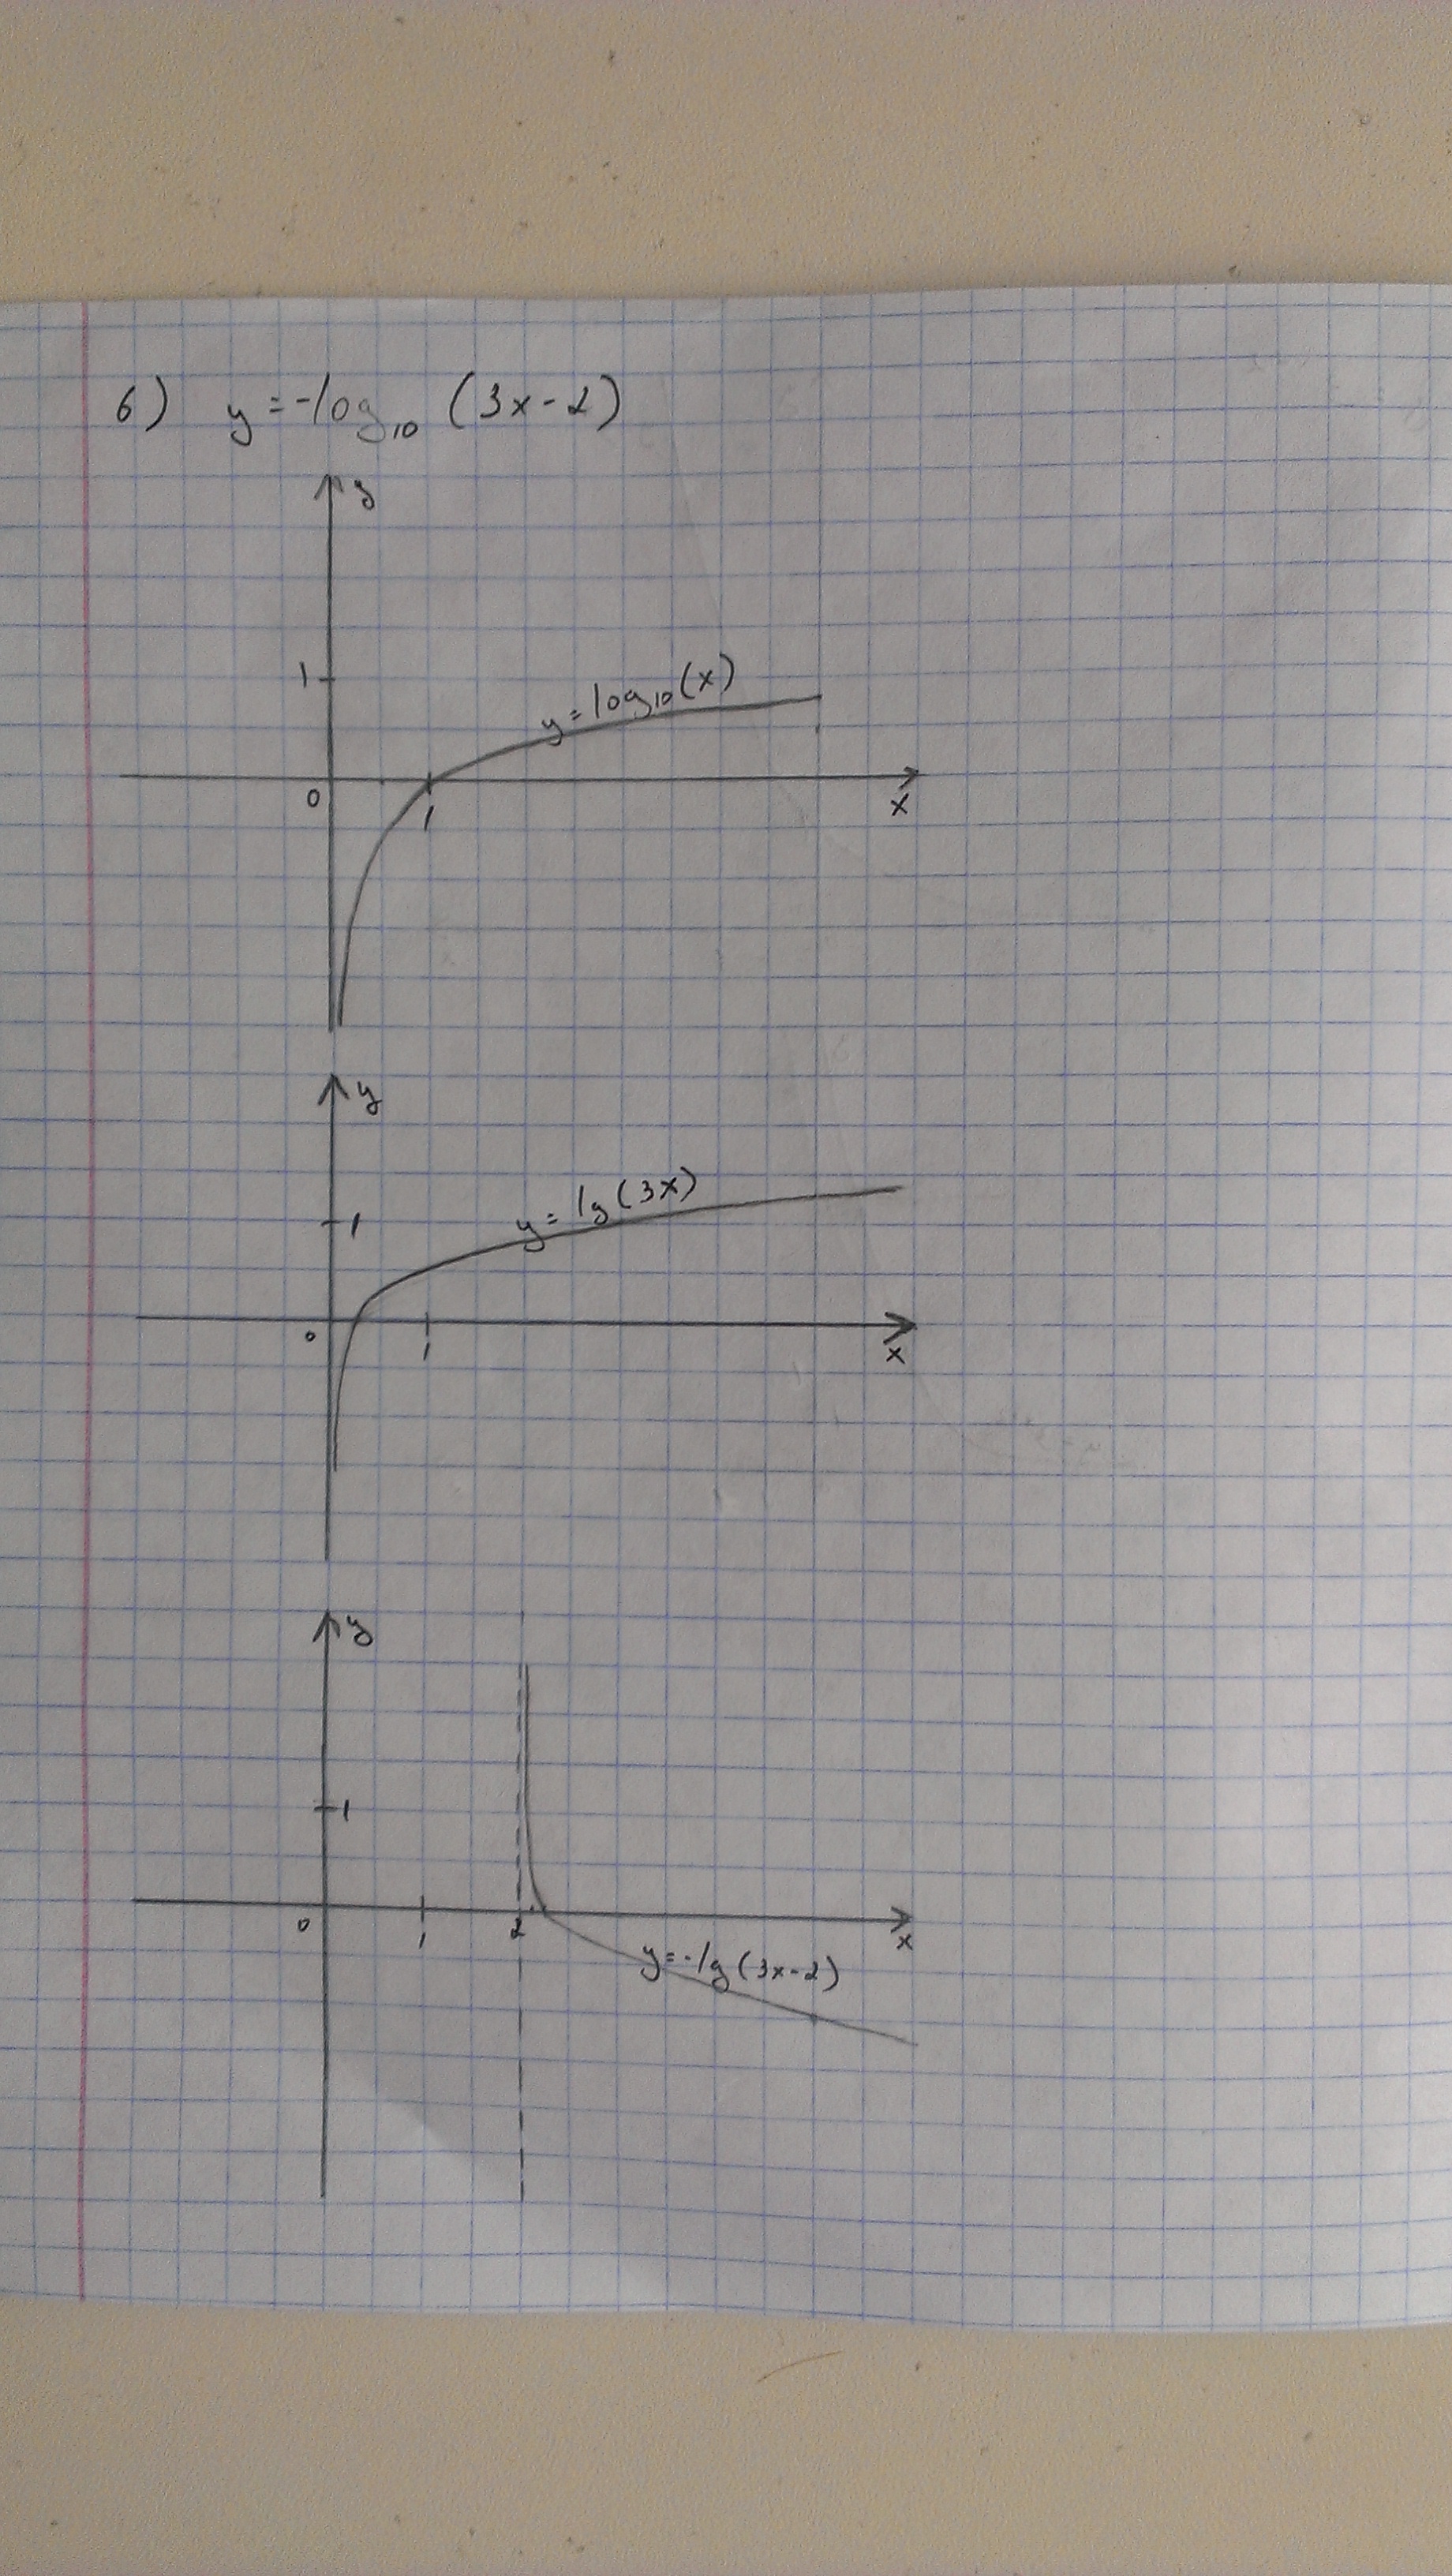 6) y = -log₁₀ (3x-2)
y
1
y = log₁₀(x)
0 1 x
y
1
y = lg(3x)
0 1 x
y
1
0 1 2 x
y = -lg(3x-2)